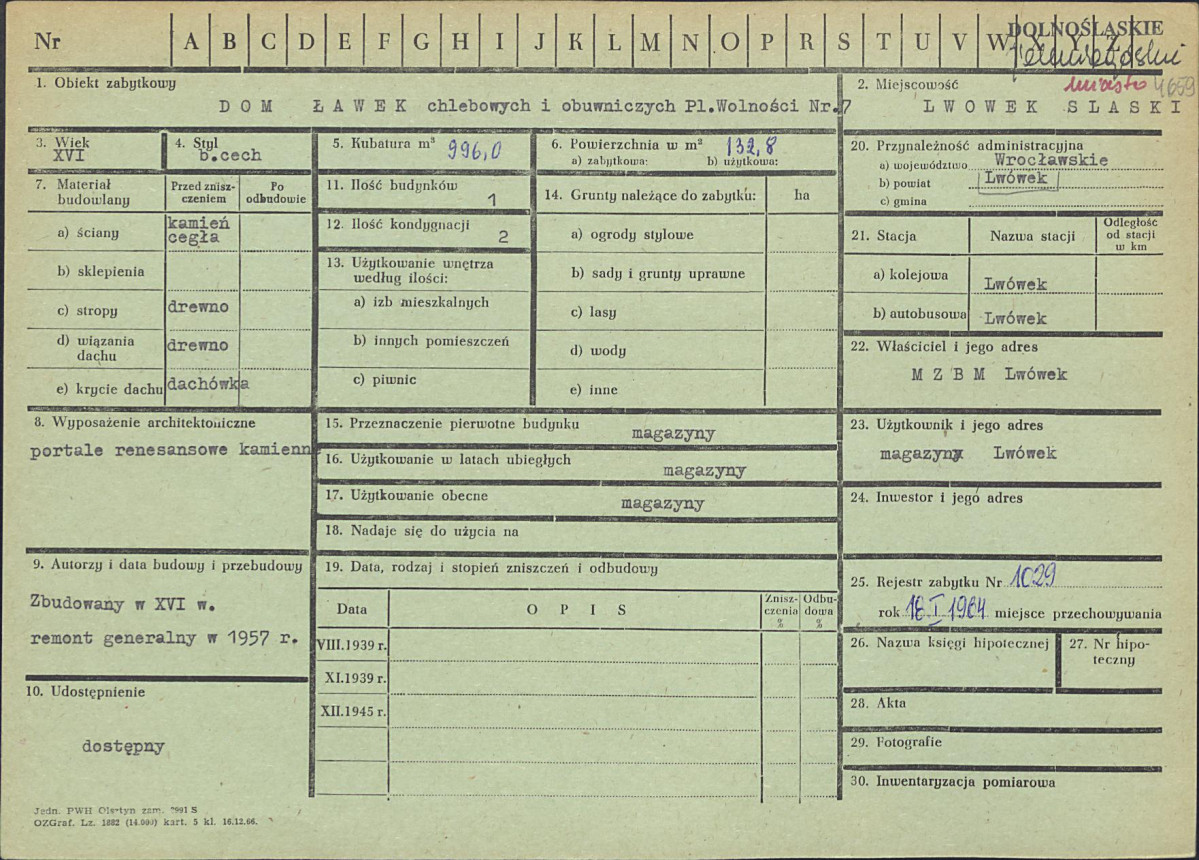 DOLNOŚLĄSKIE
Nr A B C D E F G H I J K L M N O P R S T U V W Y Z
1. Obiekt zabytkowy
DOM ŁAWEK chlebowych i obuwniczych Pl.Wolności Nr.7
2. Miejscowość
miasto 4659
LWOWEK SLASKI
3. Wiek
XVI
4. Styl
b.cech
5. Kubatura m³ 996,0
6. Powierzchnia w m² 132,8
a) zabytkowa: b) użytkowa:
7. Materiał budowlany
Przed zniszczeniem
Po odbudowie
a) ściany kamień cegła
b) sklepienia
c) stropy drewno
d) wiązania dachu drewno
e) krycie dachu dachówka
8. Wyposażenie architektoniczne
portale renesansowe kamienn
9. Autorzy i data budowy i przebudowy
Zbudowany w XVI w.
remont generalny w 1957 r.
10. Udostępnienie
dostępny
11. Ilość budynków 1
12. Ilość kondygnacji 2
13. Użytkowanie wnętrza według ilości:
a) izb mieszkalnych
b) innych pomieszczeń
c) piwnic
14. Grunty należące do zabytku: ha
a) ogrody stylowe
b) sady i grunty uprawne
c) lasy
d) wody
e) inne
15. Przeznaczenie pierwotne budynku magazyny
16. Użytkowanie w latach ubiegłych magazyny
17. Użytkowanie obecne magazyny
18. Nadaje się do użycia na
19. Data, rodzaj i stopień zniszczeń i odbudowy
Data OPIS Zniszczenia % Odbudowa %
VIII.1939 r.
XI.1939 r.
XII.1945 r.
20. Przynależność administracyjna
a) województwo Wrocławskie
b) powiat Lwówek
c) gmina
21. Stacja Nazwa stacji Odległość od stacji w km
a) kolejowa Lwówek
b) autobusowa Lwówek
22. Właściciel i jego adres
M Z B M Lwówek
23. Użytkownik i jego adres
magazyny Lwówek
24. Inwestor i jego adres
25. Rejestr zabytku Nr 1029
rok 18 I 1964 miejsce przechowywania
26. Nazwa księgi hipotecznej
27. Nr hipoteczny
28. Akta
29. Fotografie
30. Inwentaryzacja pomiarowa
Jedn. PWH Olsztyn zam. 2991 S
OZGraf. Lz. 1882 (14.000) kart. 5 kl. 16.12.66.